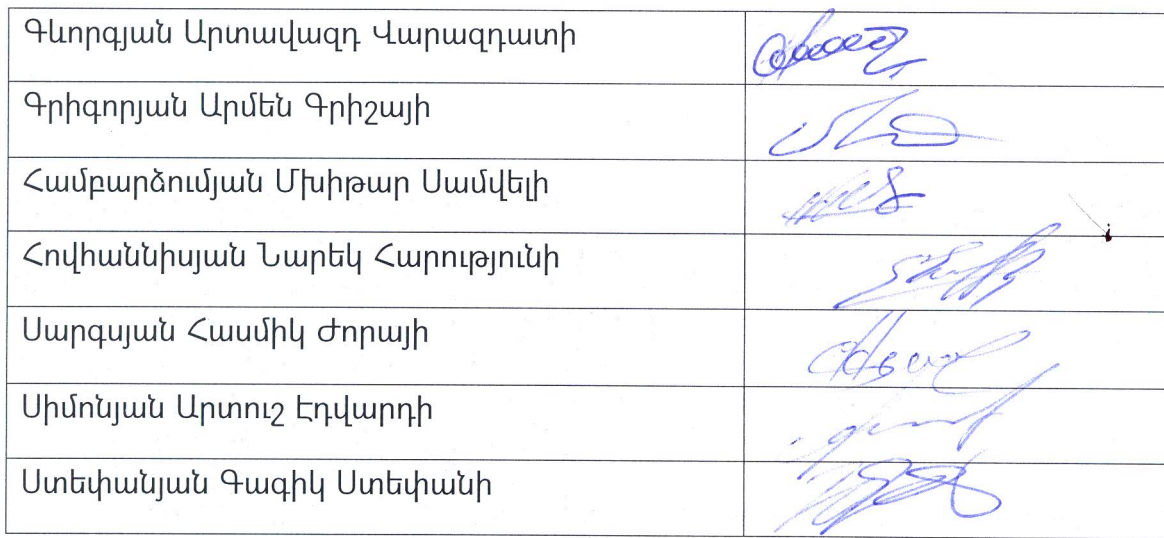 Գևորգյան Արտավազդ Վարազդատի
Գրիգորյան Արմեն Գրիշայի
Համբարձումյան Մխիթար Սամվելի
Հովհաննիսյան Նարեկ Հարությունի
Սարգսյան Հասմիկ Ժորայի
Սիմոնյան Արտուշ Էդվարդի
Ստեփանյան Գագիկ Ստեփանի